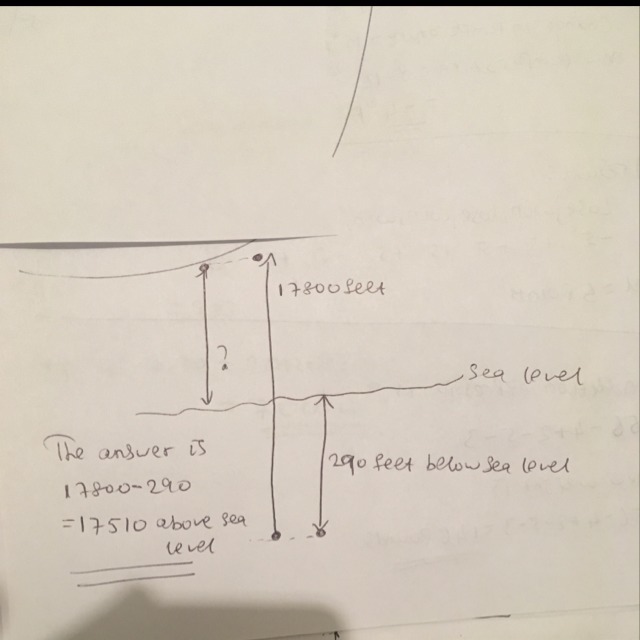 17800 feet
?
sea level
290 feet below sea level
The answer is
17800-290
=17510 above sea
level